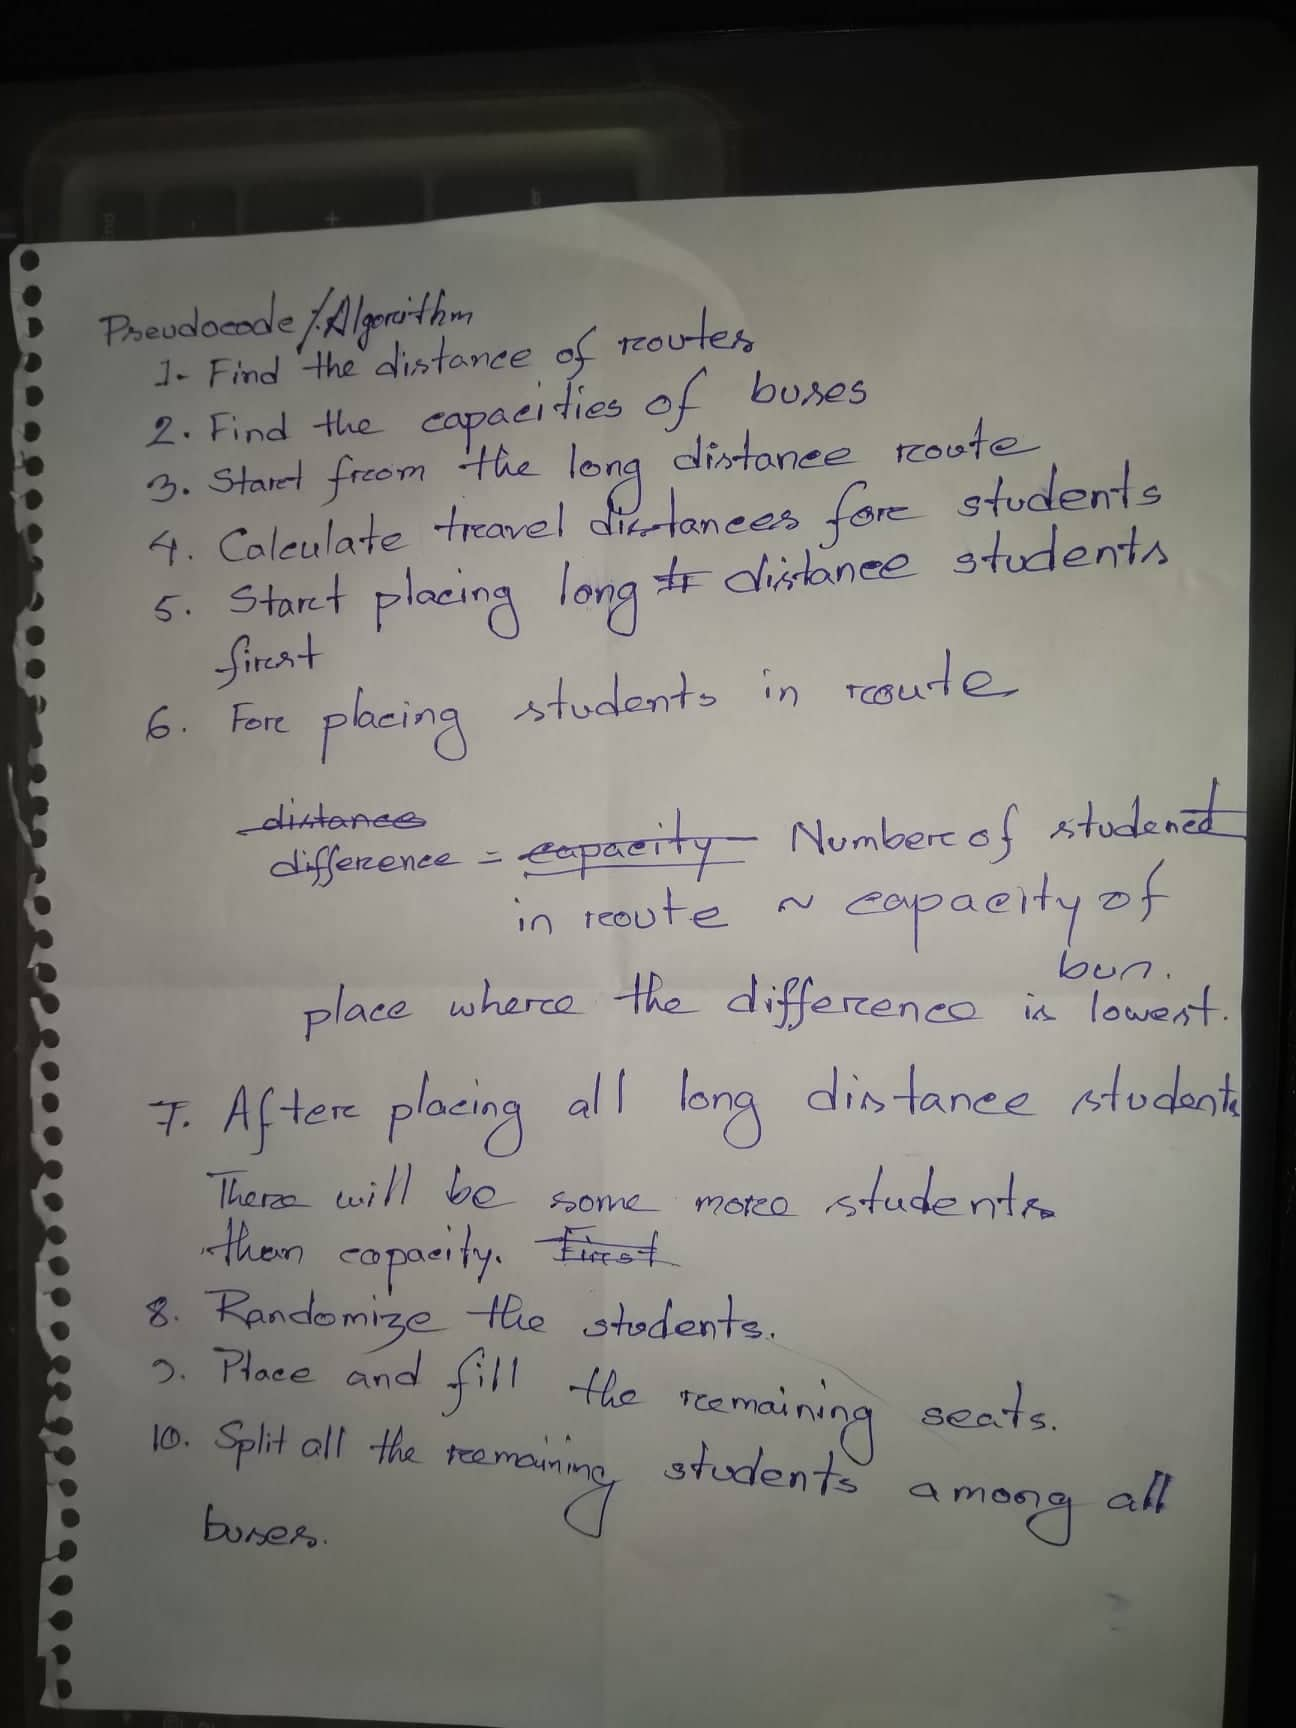 Pseudocode / Algorithm
1- Find the distance of routes
2. Find the capacities of buses
3. Start from the long distance route
4. Calculate travel distances for students
5. Start placing long distance students
first
6. For placing students in route
distance
difference = capacity - Number of student
in route ~ capacity of
bus.
place where the difference is lowest.
7. After placing all long distance students
There will be some more students
than capacity. First
8. Randomize the students.
9. Place and fill the remaining seats.
10. Split all the remaining students among all
buses.